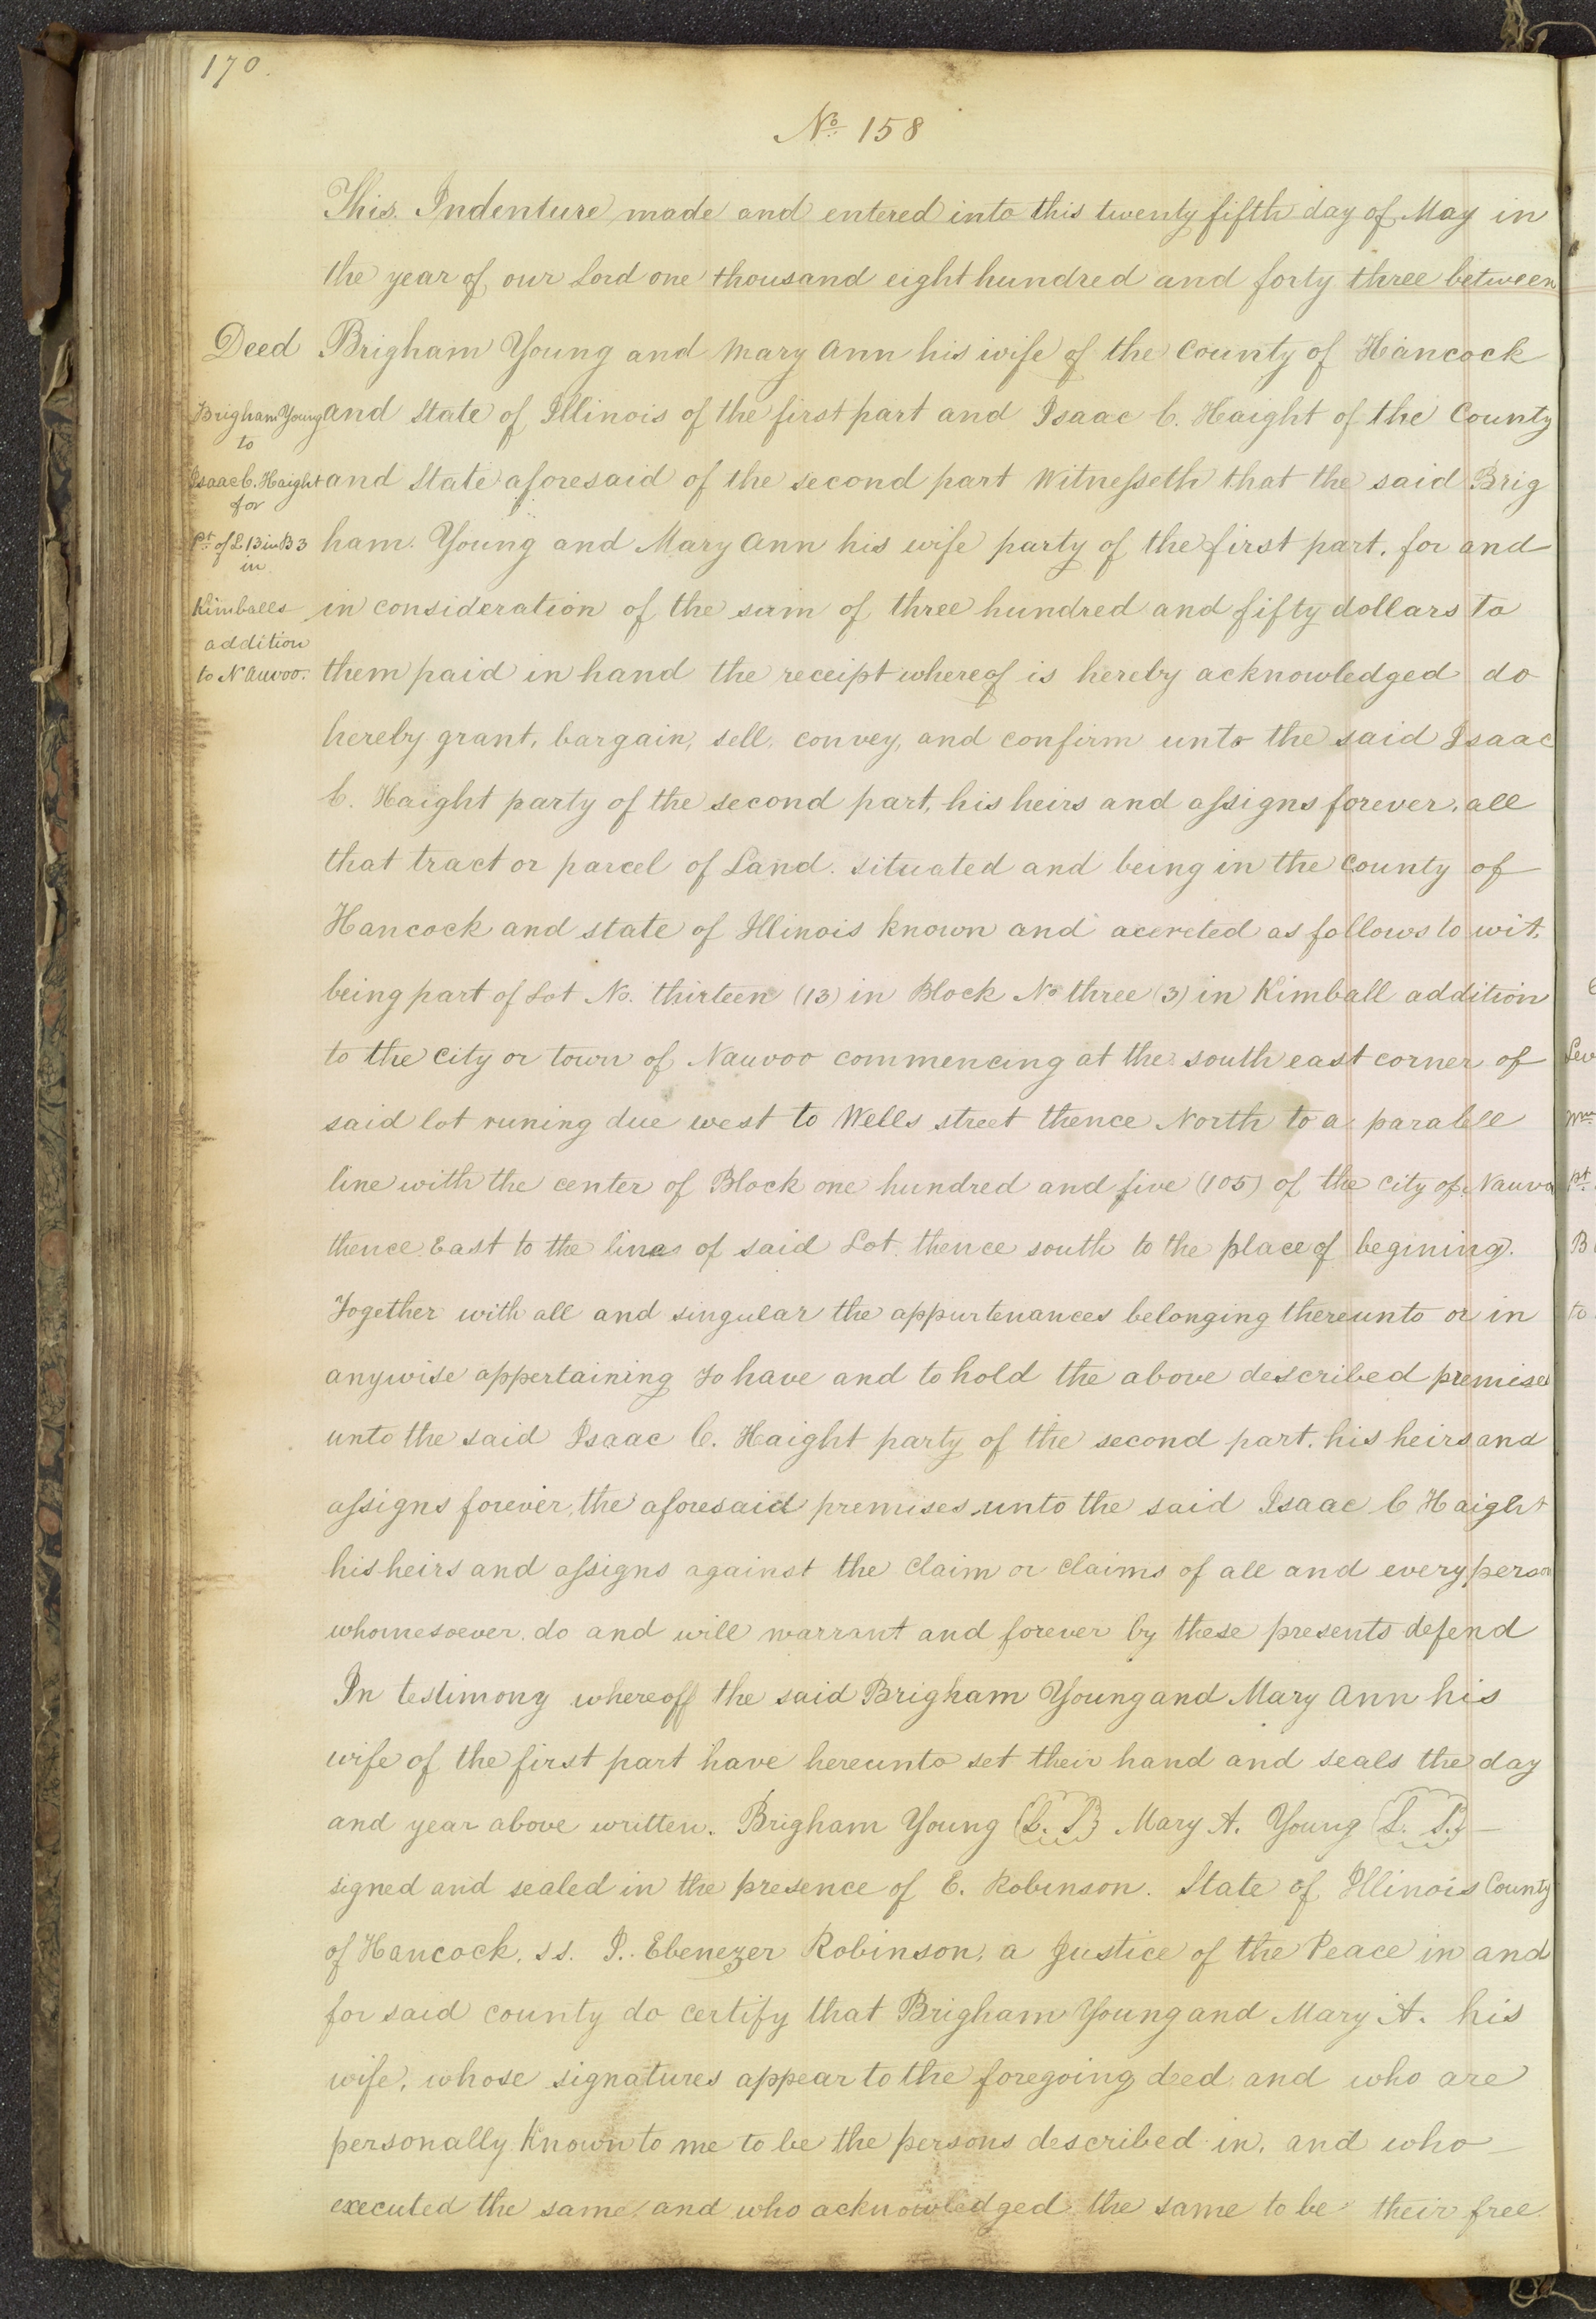 170.
No. 158
This Indenture made and entered into this twenty fifth day of May in
the year of our Lord one thousand eight hundred and forty three between
Deed
Brigham Young and Mary Ann his wife of the County of Hancock
Brigham Young
to
Isaac C. Haight
for
Pt. of L 13 in B 3
in
Kimballs
addition
to Nauvoo.
and State of Illinois of the first part and Isaac C. Haight of the County
and State aforesaid of the second part Witnesseth that the said Brig
ham. Young and Mary Ann his wife party of the first part, for and
in consideration of the sum of three hundred and fifty dollars to
them paid in hand the receipt whereof is hereby acknowledged do
hereby grant, bargain, sell, convey, and confirm unto the said Isaac
C. Haight party of the second part, his heirs and assigns forever, all
that tract or parcel of Land. situated and being in the County of
Hancock and state of Illinois known and as follows to wit,
being part of Lot No. thirteen (13) in Block No three (3) in Kimball addition
to the City or town of Nauvoo commencing at the south east corner of
said lot runing due west to Wells street thence North to a paralell
line with the center of Block one hundred and five (105) of the City of Nauvoo
thence East to the line of said Lot. thence south to the place of begining.
Together with all and singular the appurtenances belonging thereunto or in
anywise appertaining To have and to hold the above described premises
unto the said Isaac C. Haight party of the second part. his heirs and
assigns forever, the aforesaid premises unto the said Isaac C Haight
his heirs and assigns against the Claim or Claims of all and every person
whomesoever. do and will warrant and forever by these presents defend
In testimony whereoff the said Brigham Young and Mary Ann his
wife of the first part have hereunto set their hand and seals the day
and year above written. Brigham Young (L. S) Mary A. Young (L. S.) —
signed and sealed in the presence of E. Robinson. State of Illinois County
of Hancock. ss. I.. Ebenezer Robinson, a Justice of the Peace in and
for said county do certify that Brigham Young and Mary A. his
wife, whose signatures appear to the foregoing deed and who are
personally Known to me to be the persons described in, and who —
executed the same, and who acknowledged the same to be their free